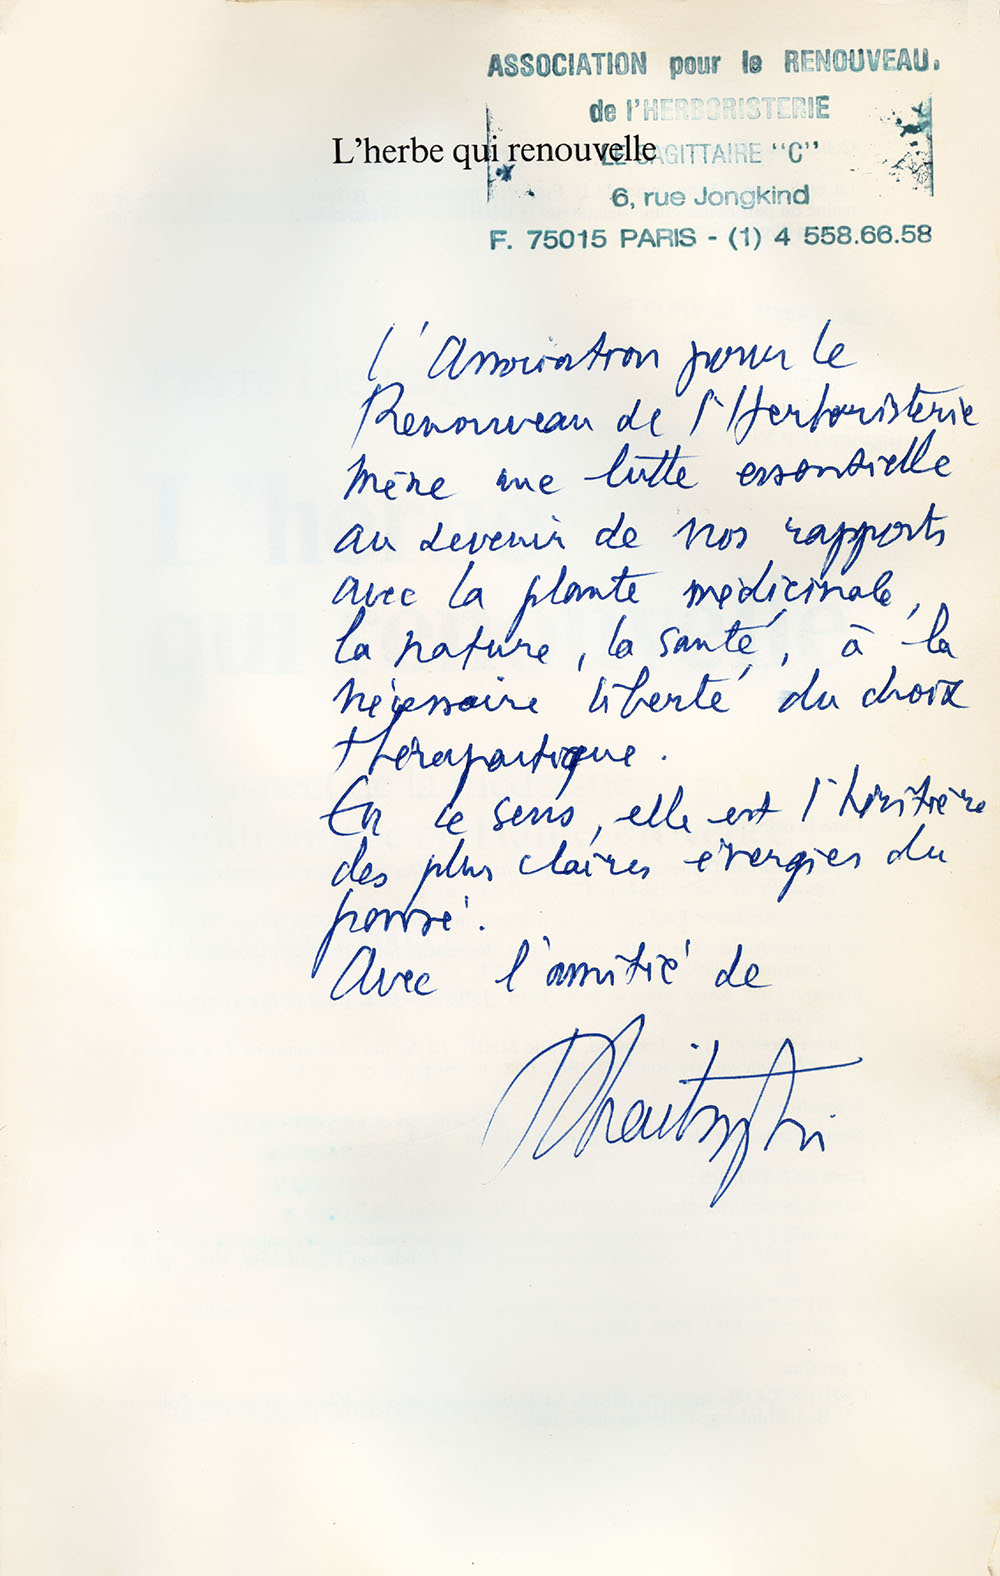 ASSOCIATION pour le RENOUVEAU.
de l'HERBORISTERIE
L'herbe qui renouvelle
LE SAGITTAIRE "C"
6, rue Jongkind
F. 75015 PARIS - (1) 4 558.66.58
l'Association pour le
Renouveau de l'Herboristerie
mène une lutte essentielle
au devenir de nos rapports
avec la plante médicinale,
la nature, la santé, à la
nécessaire liberté du choix
thérapeutique.
En ce sens, elle est l'héritière
des plus claires énergies du
passé.
Avec l'amitié de